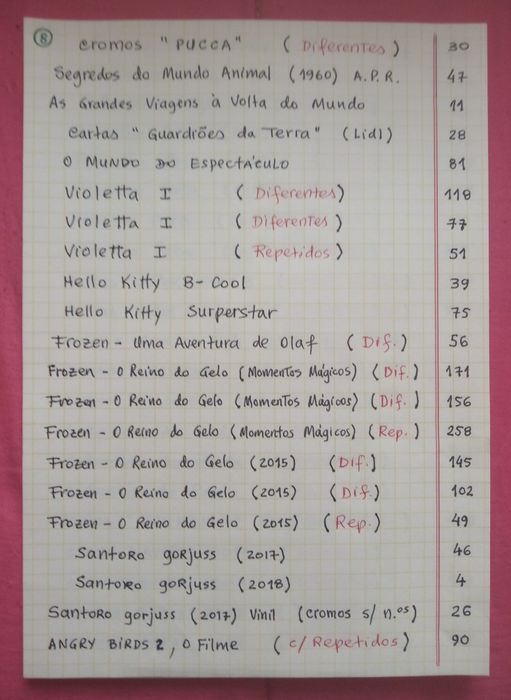 8
Cromos "PUCCA" (Diferentes) 30
Segredos do Mundo Animal (1960) A.P.R. 47
As Grandes Viagens à Volta do Mundo 11
Cartas "Guardiões da Terra" (Lidl) 28
O MUNDO DO ESPECTÁCULO 81
Violetta I (Diferentes) 118
Violetta I (Diferentes) 77
Violetta I (Repetidos) 51
Hello Kitty B-Cool 39
Hello Kitty Surperstar 75
Frozen - Uma Aventura de Olaf (Dif.) 56
Frozen - O Reino do Gelo (Momentos Mágicos) (Dif.) 171
Frozen - O Reino do Gelo (Momentos Mágicos) (Dif.) 156
Frozen - O Reino do Gelo (Momentos Mágicos) (Rep.) 258
Frozen - O Reino do Gelo (2015) (Dif.) 145
Frozen - O Reino do Gelo (2015) (Dif.) 102
Frozen - O Reino do Gelo (2015) (Rep.) 49
Santoro gorjuss (2017) 46
Santoro gorjuss (2018) 4
Santoro gorjuss (2017) Vinil (cromos s/ n.os) 26
ANGRY BIRDS 2, O Filme (c/ Repetidos) 90